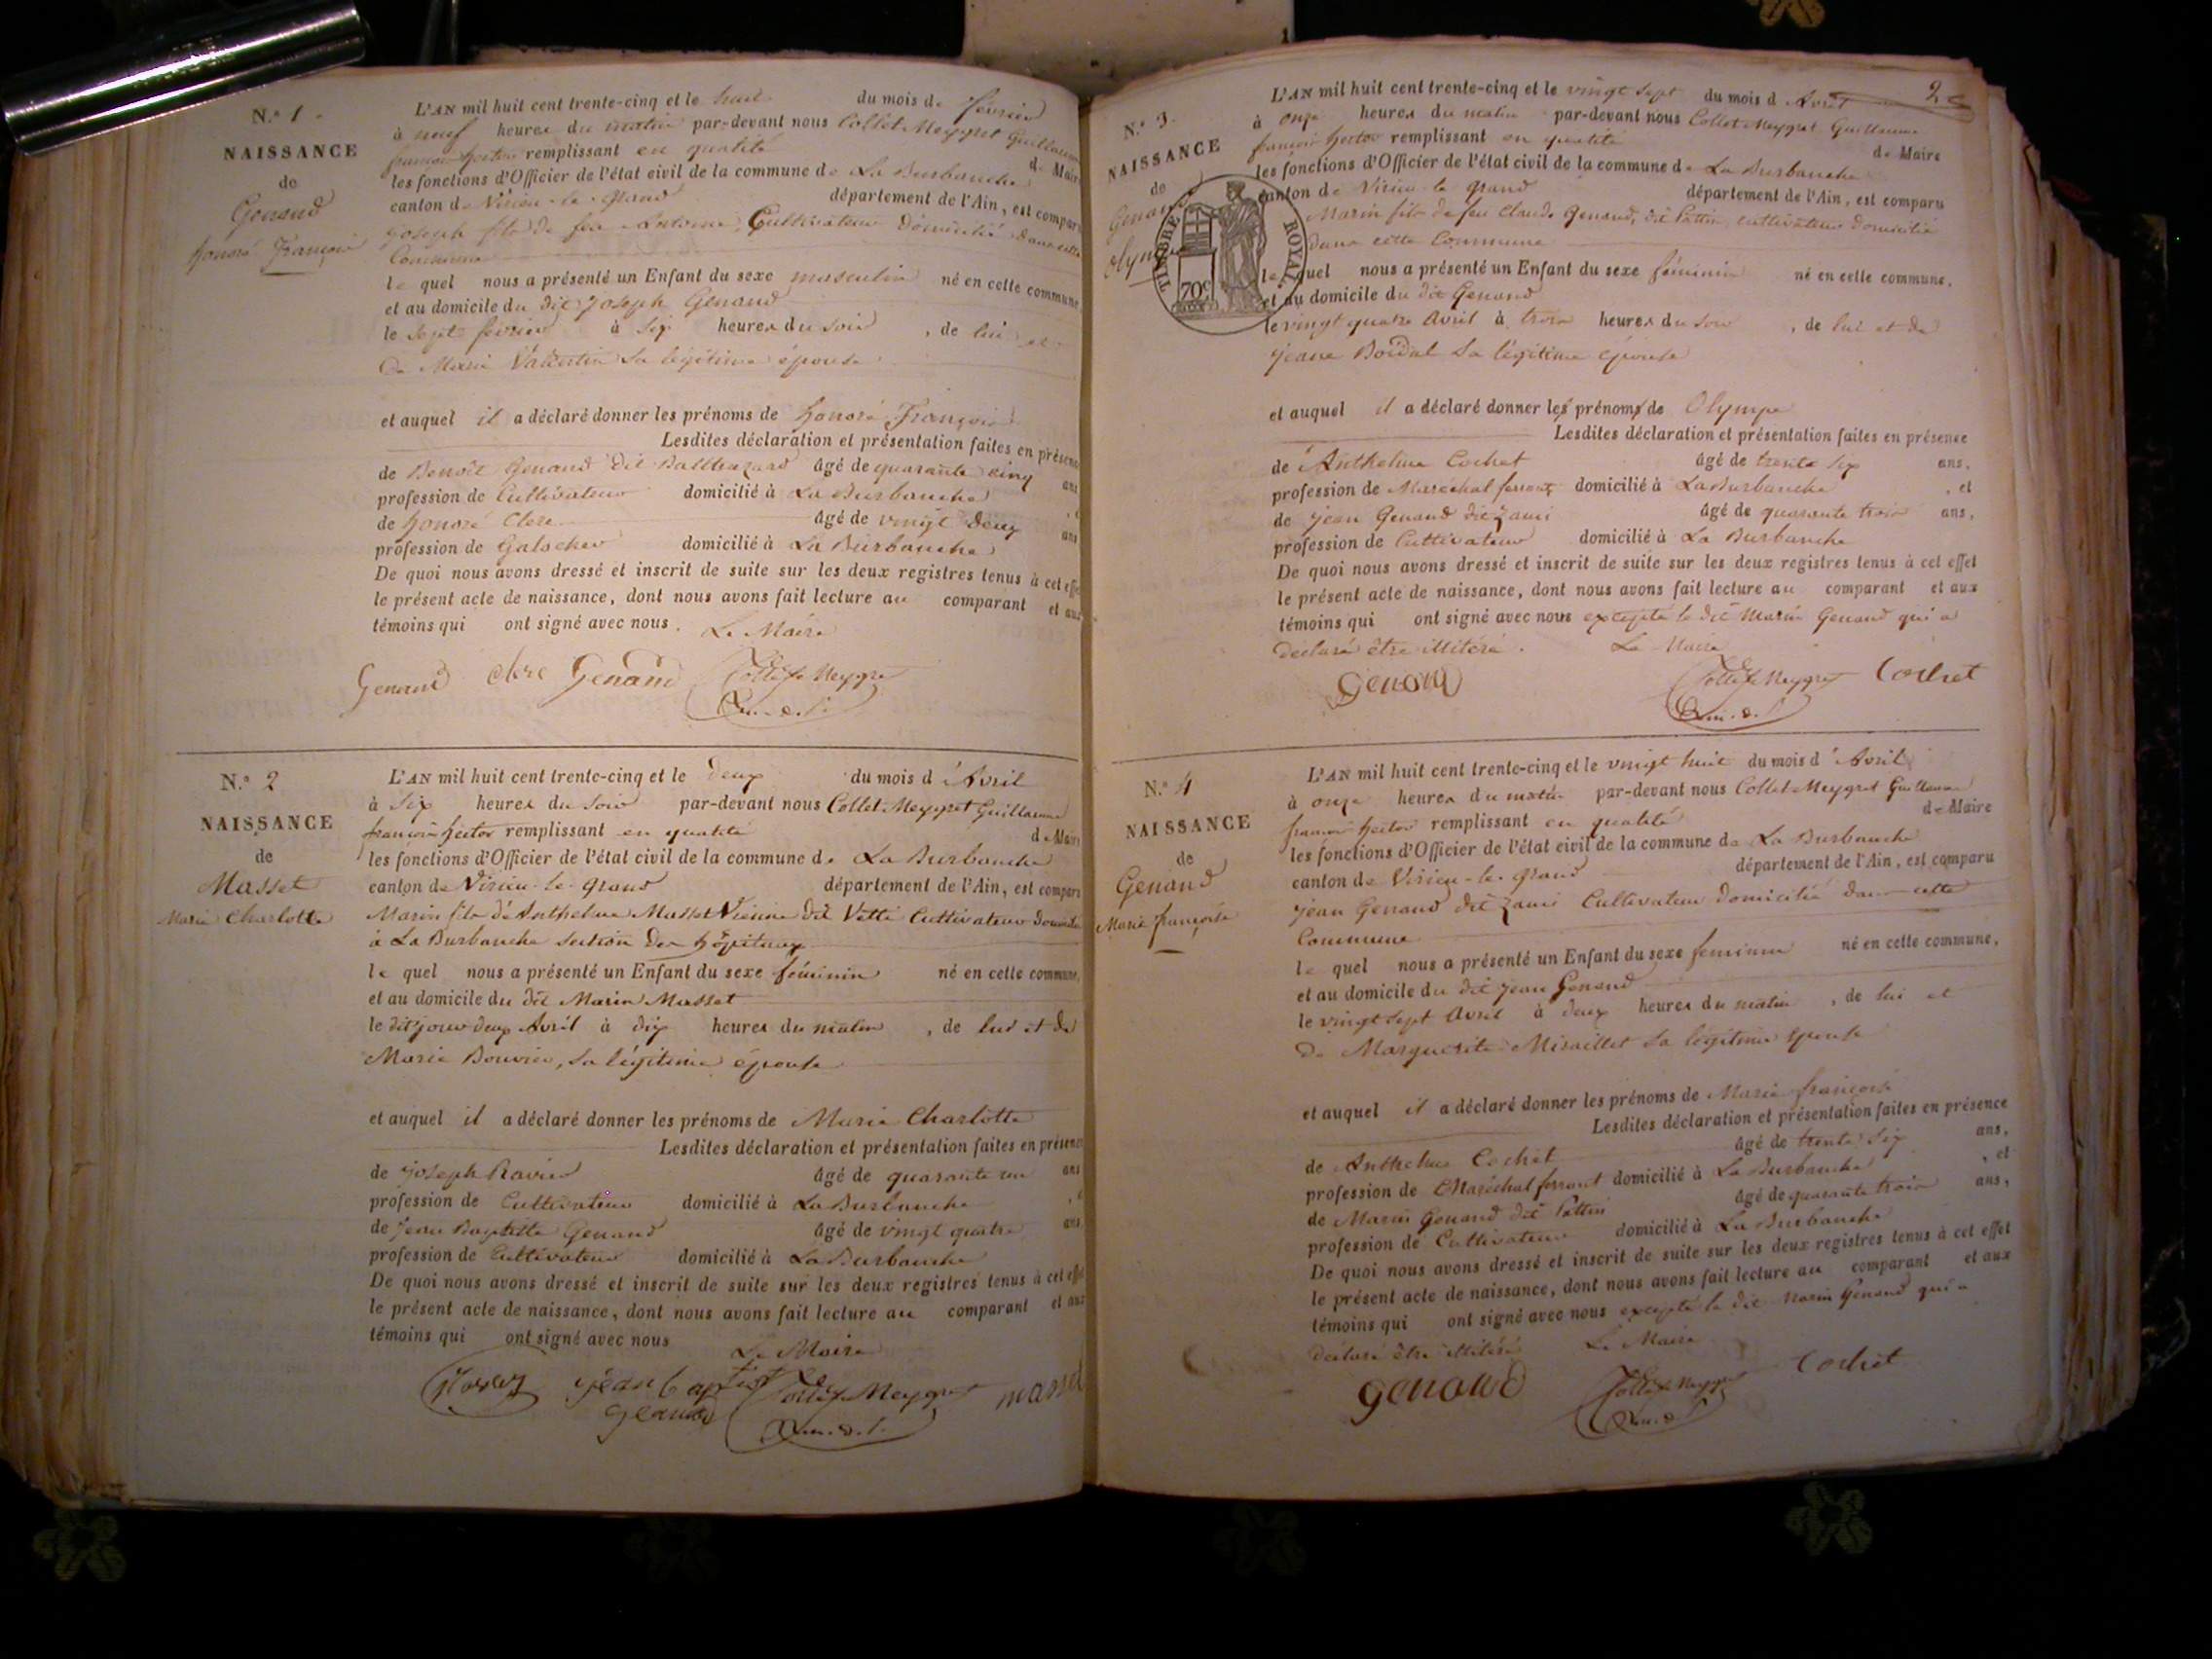 N.° 1
NAISSANCE
de
Genand
honoré François
L'AN mil huit cent trente-cinq et le huit du mois de février
à neuf heures du matin par-devant nous Collet-Meygret Guillaume
françois hector remplissant en qualité de Maire
les fonctions d'Officier de l'état civil de la commune de La Burbanche
canton de Virieu-le-Grand département de l'Ain, est comparu
Joseph fils de feu Antoine, Cultivateur domicilié dans cette
Commune
le quel nous a présenté un Enfant du sexe masculin né en cette commune
et au domicile du dit Joseph Genand
le sept février à six heures du soir, de lui et
de Marie Vallentin sa légitime épouse
et auquel il a déclaré donner les prénoms de honoré François
Lesdites déclaration et présentation faites en présence
de Benoît Genand dit Balthazard âgé de quarante cinq ans
profession de Cultivateur domicilié à La Burbanche
de honoré Clerc âgé de vingt deux ans
profession de Galocher domicilié à La Burbanche
De quoi nous avons dressé et inscrit de suite sur les deux registres tenus à cet effet
le présent acte de naissance, dont nous avons fait lecture au comparant et aux
témoins qui ont signé avec nous. Le Maire
Genand Clerc Genand Collet Meygret
N.° 2
NAISSANCE
de
Masset
Marie Charlotte
L'AN mil huit cent trente-cinq et le deux du mois d'Avril
à six heures du soir par-devant nous Collet-Meygret Guillaume
françois hector remplissant en qualité de Maire
les fonctions d'Officier de l'état civil de la commune de La Burbanche
canton de Virieu-le-Grand département de l'Ain, est comparu
Marin fils d'Anthelme Masset Vienne dit Vetti Cultivateur domicilié
à La Burbanche section des hôpitaux
le quel nous a présenté un Enfant du sexe féminin né en cette commune,
et au domicile du dit Marin Masset
le dit jour deux Avril à dix heures du matin, de lui et de
Marie Bouvier, sa légitime épouse
et auquel il a déclaré donner les prénoms de Marie Charlotte
Lesdites déclaration et présentation faites en présence
de Joseph Ravier âgé de quarante un ans
profession de Cultivateur domicilié à La Burbanche
de Jean Baptiste Genand âgé de vingt quatre ans
profession de Cultivateur domicilié à La Burbanche
De quoi nous avons dressé et inscrit de suite sur les deux registres tenus à cet effet
le présent acte de naissance, dont nous avons fait lecture au comparant et aux
témoins qui ont signé avec nous Le Maire
jean baptiste Collet Meygret masset
genand
2
N.° 3.
NAISSANCE
de
Genand
Olympe
TIMBRE ROYAL
70c
L'AN mil huit cent trente-cinq et le vingt sept du mois d Avril
à onze heures du matin par-devant nous Collet-Meygret Guillaume
françois hector remplissant en qualité de Maire
les fonctions d'Officier de l'état civil de la commune de La Burbanche
canton de Virieu-le-Grand département de l'Ain, est comparu
Marin fils de feu Claude Genand, dit Pattin, cultivateur domicilié
dans cette Commune
le quel nous a présenté un Enfant du sexe féminin né en cette commune,
et au domicile du dit Genand
le vingt quatre Avril à trois heures du soir, de lui et de
Jeane Boidal sa légitime épouse
et auquel il a déclaré donner les prénoms de Olympe
Lesdites déclaration et présentation faites en présence
de Anthelme Cochet âgé de trente six ans,
profession de Maréchal ferrant domicilié à La Burbanche, et
de Jean Genand dit Zami âgé de quarante trois ans,
profession de Cultivateur domicilié à La Burbanche
De quoi nous avons dressé et inscrit de suite sur les deux registres tenus à cet effet
le présent acte de naissance, dont nous avons fait lecture au comparant et aux
témoins qui ont signé avec nous excepté le dit Marin Genand qui a
déclaré être illitéré. Le Maire
Genand Collet Meygret Cochet
N.° 4
NAISSANCE
de
Genand
Marie françoise
L'AN mil huit cent trente-cinq et le vingt huit du mois d'Avril
à onze heures du matin par-devant nous Collet-Meygret Guillaume
françois hector remplissant en qualité de Maire
les fonctions d'Officier de l'état civil de la commune de La Burbanche
canton de Virieu-le-Grand département de l'Ain, est comparu
Jean Genand dit Zami Cultivateur domicilié dans cette
Commune
le quel nous a présenté un Enfant du sexe feminin né en cette commune,
et au domicile du dit Jean Genand
le vingt sept Avril à deux heures du matin, de lui et
de Marguerite Miraillet sa légitime épouse
et auquel il a déclaré donner les prénoms de Marie françoise
Lesdites déclaration et présentation faites en présence
de Anthelme Cochet âgé de trente six ans,
profession de Maréchal ferrant domicilié à La Burbanche, et
de Marin Genand dit Pattin âgé de quarante trois ans,
profession de Cultivateur domicilié à La Burbanche
De quoi nous avons dressé et inscrit de suite sur les deux registres tenus à cet effet
le présent acte de naissance, dont nous avons fait lecture au comparant et aux
témoins qui ont signé avec nous excepté le dit Marin Genand qui a
déclaré être illitéré Le Maire
genand Collet Meygret Cochet